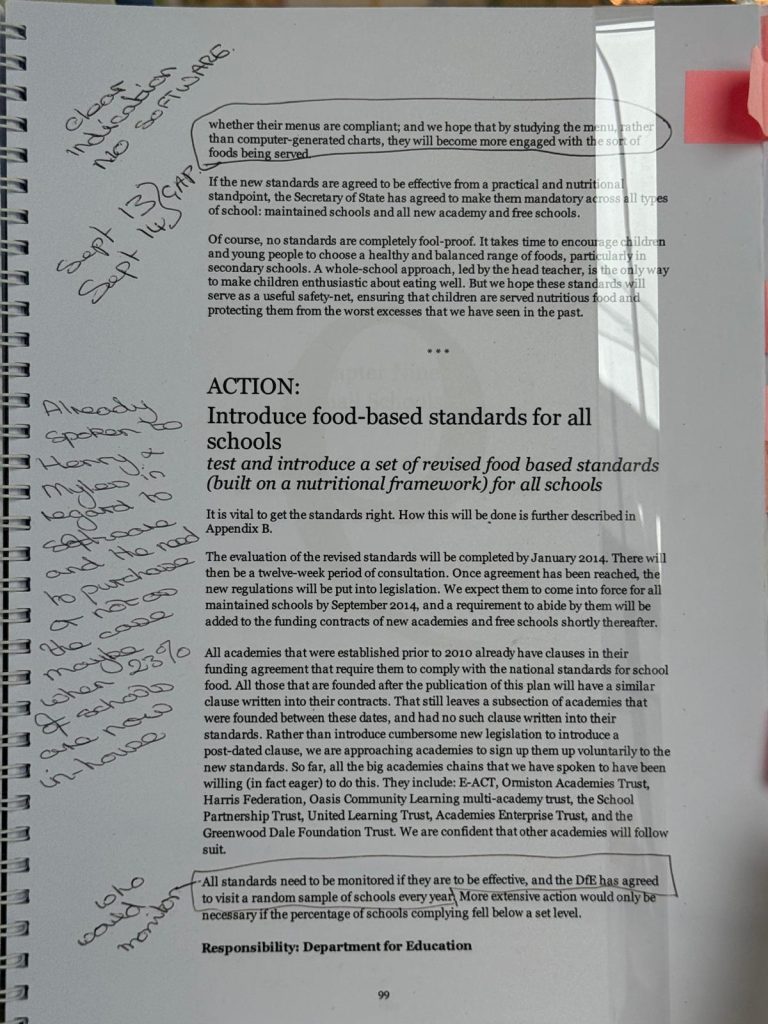 clear
indication
NO SOFTWARE.
Sept 13 } GAP
Sept 14
whether their menus are compliant; and we hope that by studying the menu, rather
than computer-generated charts, they will become more engaged with the sort of
foods being served.
If the new standards are agreed to be effective from a practical and nutritional
standpoint, the Secretary of State has agreed to make them mandatory across all types
of school: maintained schools and all new academy and free schools.
Of course, no standards are completely fool-proof. It takes time to encourage children
and young people to choose a healthy and balanced range of foods, particularly in
secondary schools. A whole-school approach, led by the head teacher, is the only way
to make children enthusiastic about eating well. But we hope these standards will
serve as a useful safety-net, ensuring that children are served nutritious food and
protecting them from the worst excesses that we have seen in the past.
* * *
ACTION:
Introduce food-based standards for all
schools
test and introduce a set of revised food based standards
(built on a nutritional framework) for all schools
Already
spoken to
Henry &
Myles in
regard to
software
and the need
to purchase
or not as
the case
maybe
when 23%
of schools
are now
in-house
It is vital to get the standards right. How this will be done is further described in
Appendix B.
The evaluation of the revised standards will be completed by January 2014. There will
then be a twelve-week period of consultation. Once agreement has been reached, the
new regulations will be put into legislation. We expect them to come into force for all
maintained schools by September 2014, and a requirement to abide by them will be
added to the funding contracts of new academies and free schools shortly thereafter.
All academies that were established prior to 2010 already have clauses in their
funding agreement that require them to comply with the national standards for school
food. All those that are founded after the publication of this plan will have a similar
clause written into their contracts. That still leaves a subsection of academies that
were founded between these dates, and had no such clause written into their
standards. Rather than introduce cumbersome new legislation to introduce a
post-dated clause, we are approaching academies to sign up them up voluntarily to the
new standards. So far, all the big academies chains that we have spoken to have been
willing (in fact eager) to do this. They include: E-ACT, Ormiston Academies Trust,
Harris Federation, Oasis Community Learning multi-academy trust, the School
Partnership Trust, United Learning Trust, Academies Enterprise Trust, and the
Greenwood Dale Foundation Trust. We are confident that other academies will follow
suit.
who
would
monitor
All standards need to be monitored if they are to be effective, and the DfE has agreed
to visit a random sample of schools every year. More extensive action would only be
necessary if the percentage of schools complying fell below a set level.
Responsibility: Department for Education
99